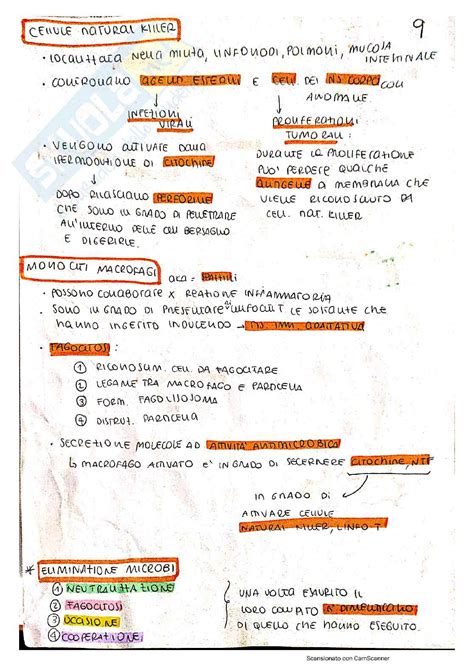 9
CELLULE NATURAL KILLER
• LOCALIZZATA NELLA MILZA, LINFONODI, POLMONI, MUCOSA INTESTINALE
• CONTROLLANO AGENTI ESTERNI E CELL. DEL NS CORPO CON ANOMALIE
INFEZIONI VIRALI
PROLIFERATIONI TUMORALI:
• VENGONO ATTIVATE DALLA
IPERMODUZIONE DI CITOCHINE
DOPO RILASCIANO PERFORINE
CHE SONO IN GRADO DI PENETRARE
ALL'INTERNO DELLE CELL BERSAGLIO
E DIGERIRLE.
DURANTE LA PROLIFERATIONE
PUO' PERDERE QUALCHE
ANTIGENE DI MEMBRANA CHE
VIENE RICONOSCIUTO DA
CELL. NAT. KILLER
MONOCITI MACROFAGI
aka =
• POSSONO COLLABORARE X REATIONE INFIAMMATORIA
• SONO IN GRADO DI PRESENTARE AI LINFOCITI T LE SOSTANZE CHE
HANNO INGERITO INDUCENDO → RIS. IMM. ADATTATIVA
• FAGOCITOSI:
① RICONOSCIM. CELL. DA FAGOCITARE
② LEGAME TRA MACROFAGO E PARTICELLA
③ FORM. FAGOLISOSOMA
④ DISTRUZ. PARTICELLA
• SECRETIONE MOLECOLE AD ATTIVITÀ ANTIMICROBICA
↳ MACROFAGO ATTIVATO E' IN GRADO DI SECERNERE CITOCHINE, NTF
IN GRADO DI
ATTIVARE CELLULE
NATURAL KILLER, LINFO-T
* ELIMINATIONE MICROBI
① NEUTRALIZZATIONE
② FAGOCITOSI
③ UCCISIONE
④ COOPERATIONE
UNA VOLTA ESAURITO IL
LORO COMPITO SI DIMENTICANO
DI QUELLO CHE HANNO ESEGUITO.
Scansionato con CamScanner